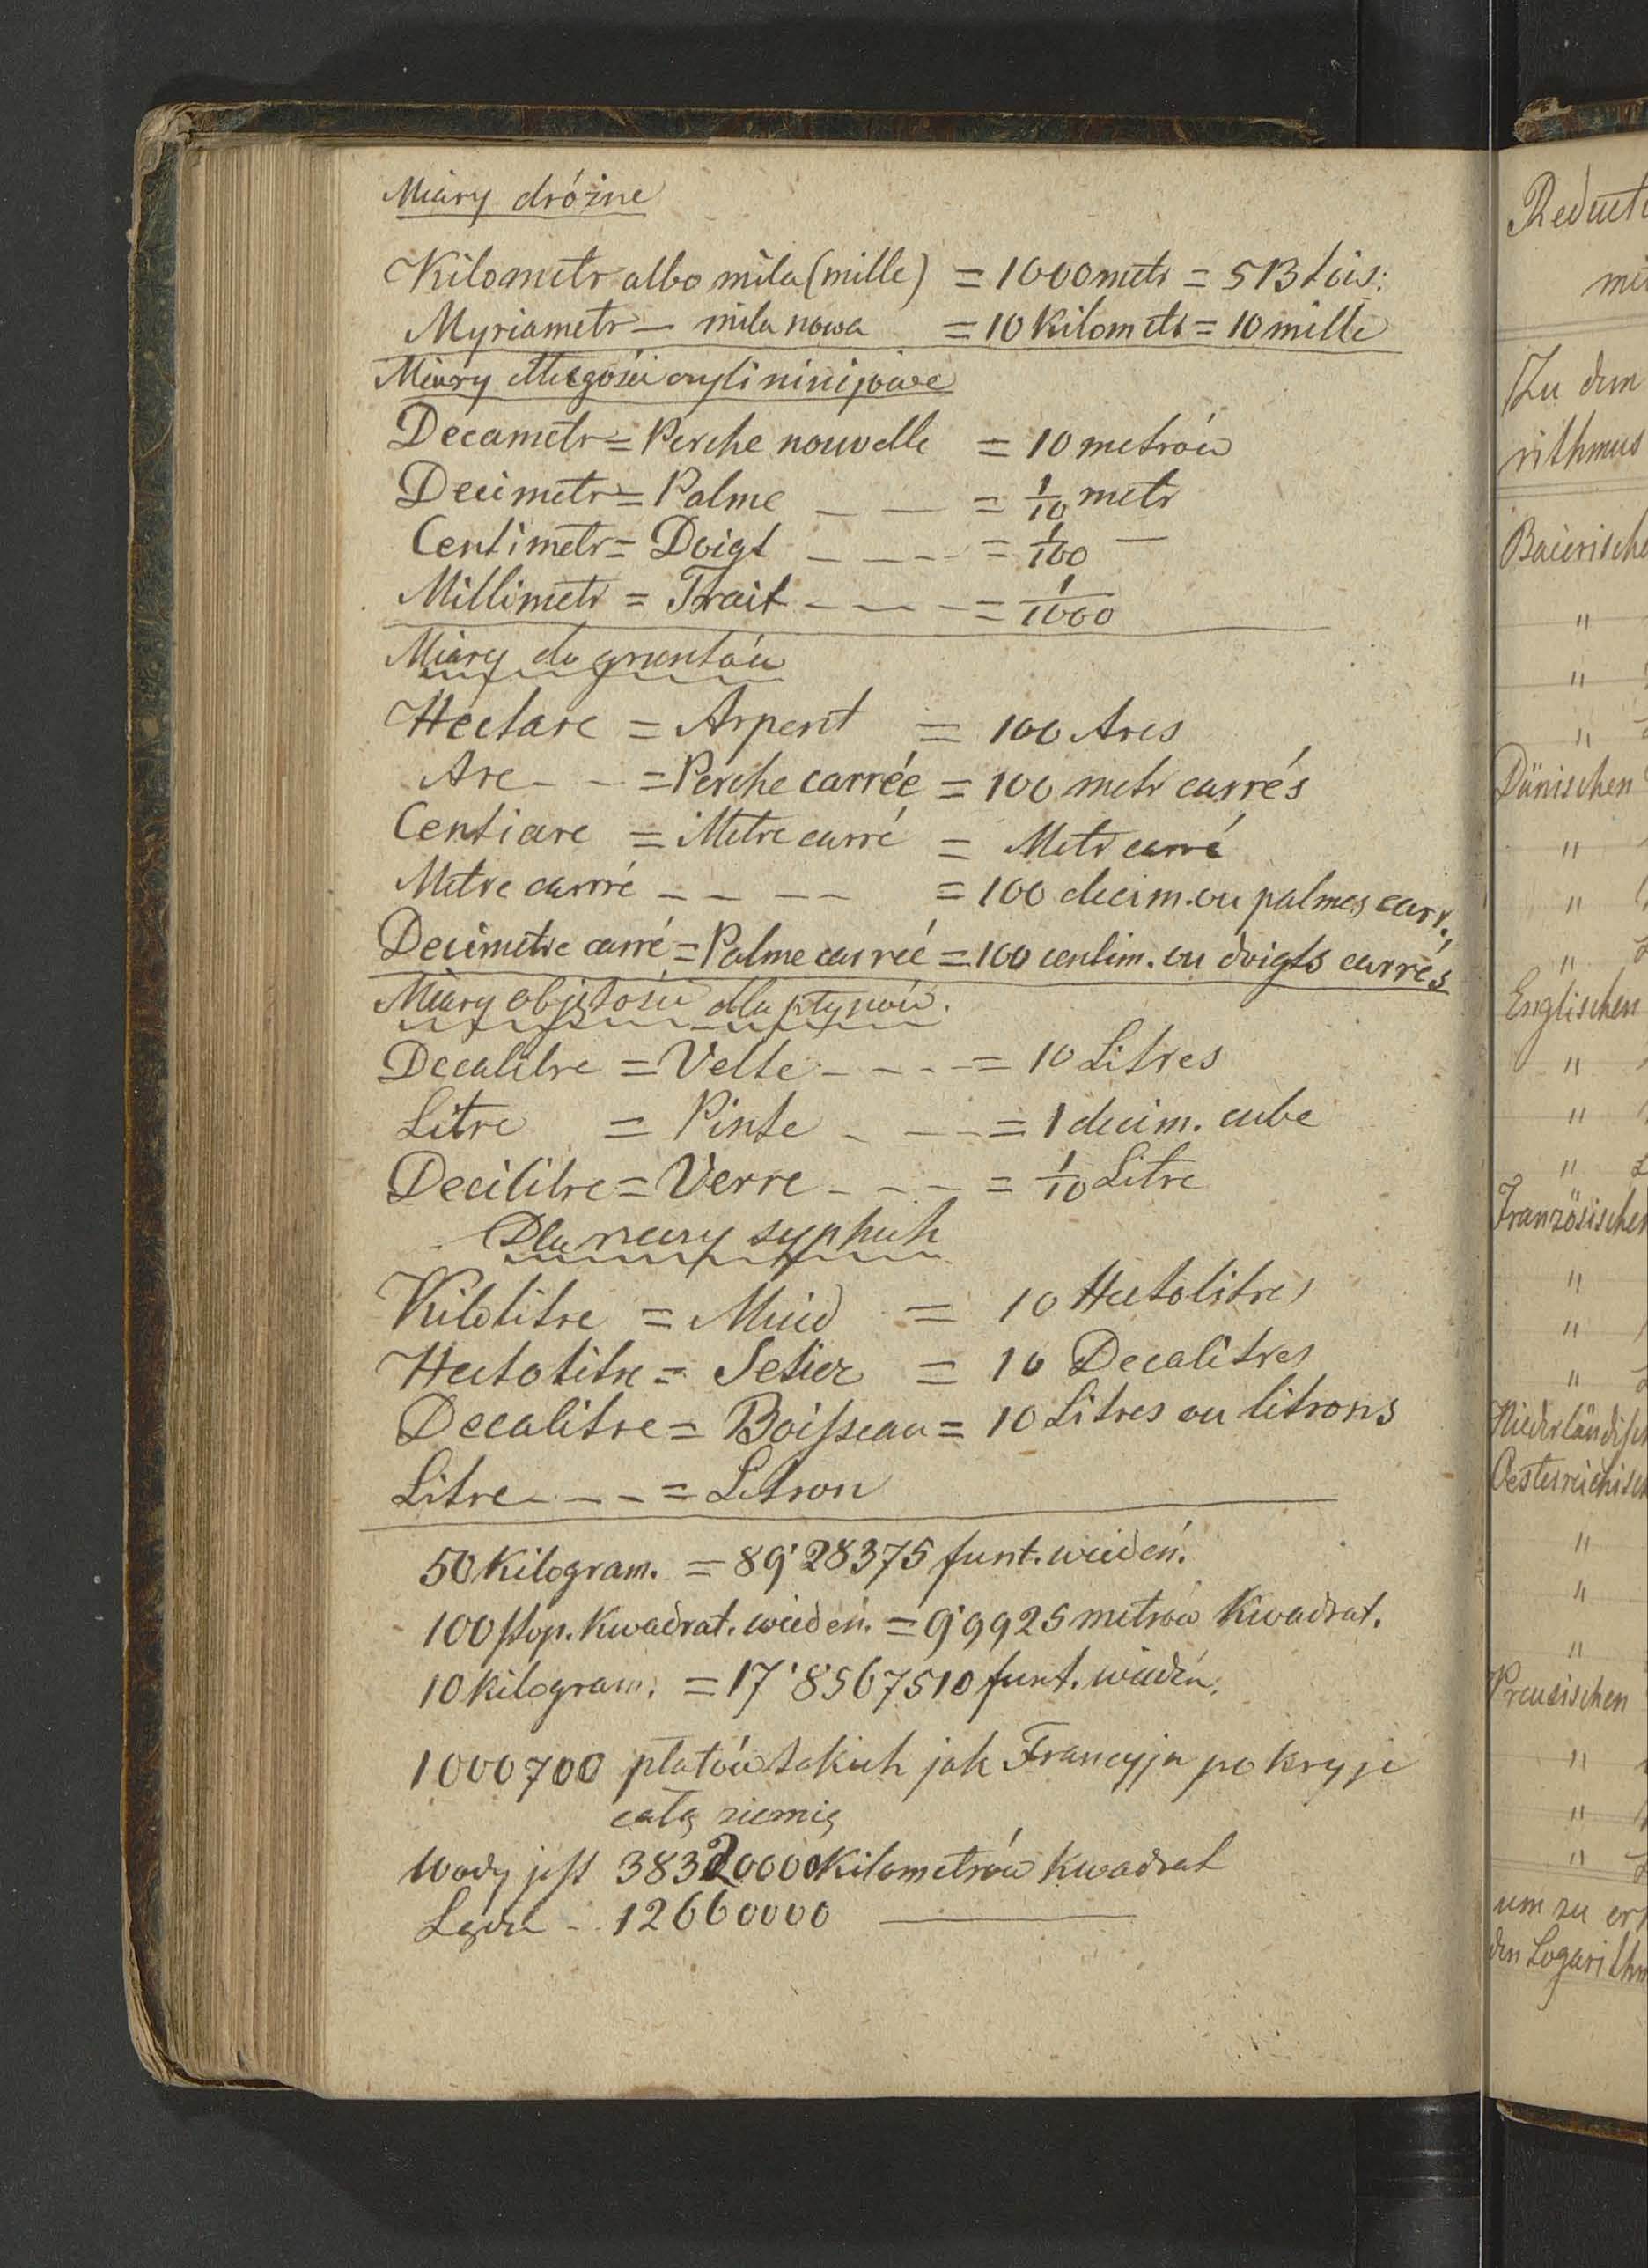 Miary dróżne
Kilometr albo mila (mille) = 1000 metr = 513 tois:
Myriametr — mila nowa = 10 Kilometr = 10 mille
Miary długości czyli linijowe
Decametr = Perche nouvelle = 10 metrów
Decimetr = Palme — — = 1/10 metr
Centimetr = Doigt — — — = 1/100 —
Millimetr = Trait — — — = 1/1000
Miary do gruntów
Hectare = Arpent = 100 Ares
Are - - = Perche carrée = 100 metr carrés
Centiare = Metre carré = Metr carré
Metre carré — — — — = 100 decim. ou palmes carr.,
Decimetre carré = Palme carrée = 100 centim. ou doigts carrés
Miary objętości dla płynów.
Decalitre = Velte - - - = 10 Litres
Litre = Pinte - — = 1 decim. cube
Decilitre = Verre - - - = 1/10 Litre
Dla rzeczy sypkich
Kilolitre = Muid = 10 Hectolitres
Hectolitre = Setier = 10 Decalitres
Decalitre = Boisseau = 10 Litres ou litrons
Litre - - - = Litron
50 Kilogram. = 89'28375 funt. wiedeń.
100 stop. Kwadrat. wiedeń. = 9'9925 metrów Kwadrat.
10 kilogram. = 17'8567510 funt. wiedeń.
1000700 płatów takich jak Francyja pokryje
całą ziemię
Wody jest 38320000 Kilometrów Kwadrat
Lądu - 12660000 ———
Reducti
Zu dem
rithmus
Baierische
"
"
"
Dänischen
"
"
"
Englischen
"
"
"
Französischen
"
"
"
Niederländisch
Oesterreichisch
"
"
"
Preusischen
"
"
"
um zu er
den Logarithm